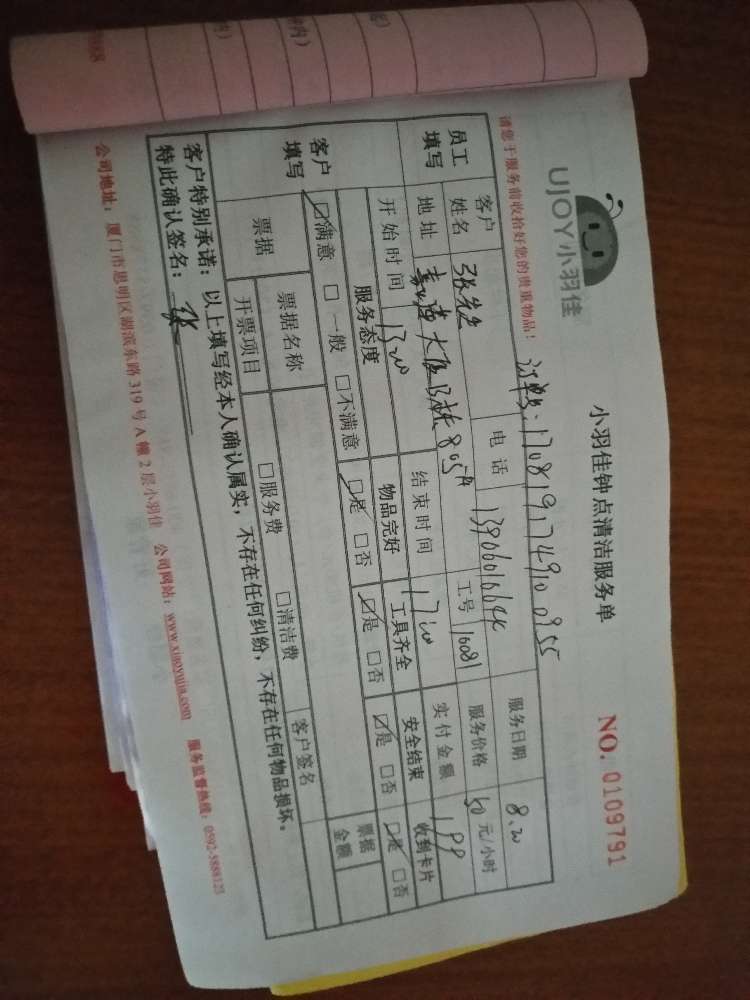 UJOY小羽佳
小羽佳钟点清洁服务单
NO. 0109791
请您于服务前收拾好您的贵重物品！
员工
填写
客户
姓名
电话
服务日期
8.20
地址
大厦B栋805
工号
10081
服务价格
50
元/小时
开始时间
结束时间
实付金额
199
客户
填写
服务态度
物品完好
工具齐全
安全结束
收到卡片
☑满意 □一般 □不满意
☑是 □否
☑是 □否
☑是 □否
☑是 □否
票据
票据名称
开票项目
□服务费
□清洁费
客户签名
票据
金额
客户特别承诺：以上填写经本人确认属实，不存在任何纠纷，不存在任何物品损坏。
特此确认签名：张
公司地址：厦门市思明区湖滨东路319号A幢2层小羽佳 公司网站：www.xiaoyujia.com 服务监督热线：0592-5888123